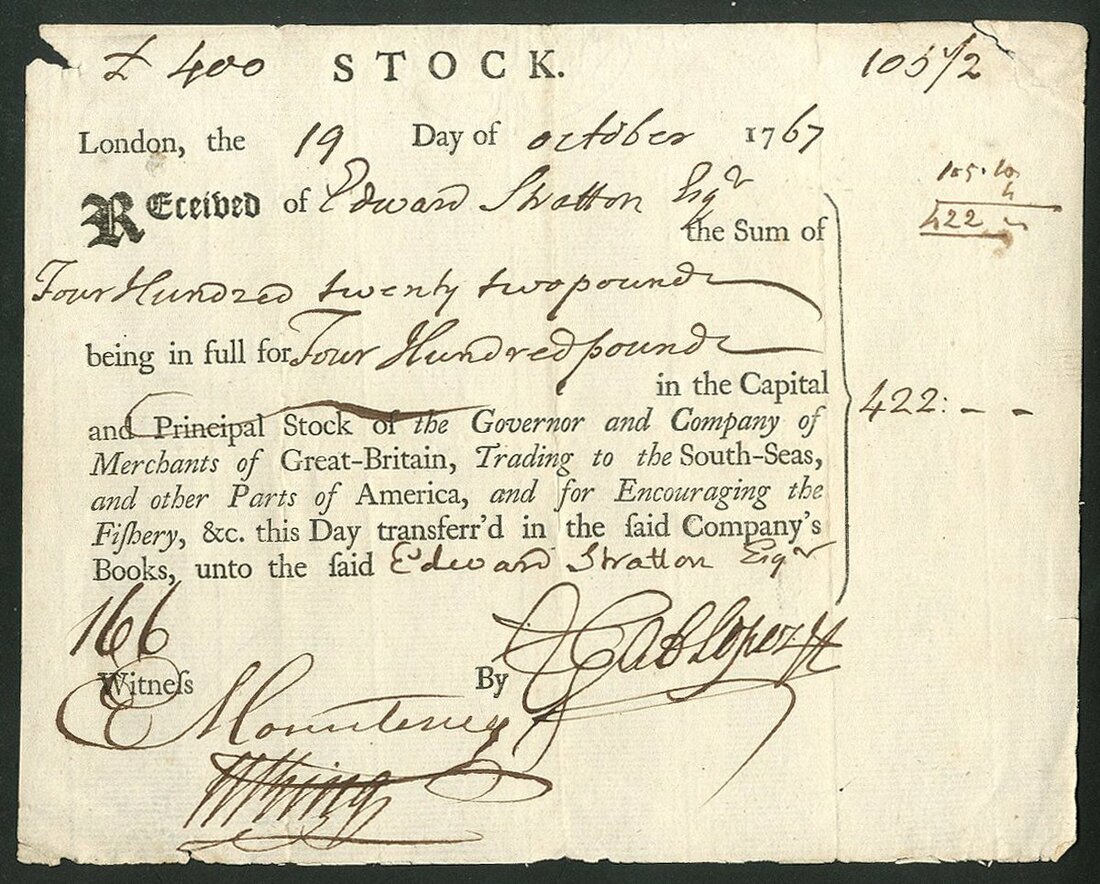 £ 400 STOCK. 105 1/2
London, the 19 Day of october 1767
REceived of Edward Stratton Esqr
the Sum of
105.10
4
422 -
Four Hundred twenty two pounds
being in full for Four Hundred pounds
in the Capital
422: - -
and Principal Stock of the Governor and Company of
Merchants of Great-Britain, Trading to the South-Seas,
and other Parts of America, and for Encouraging the
Fiſhery, &c. this Day transferr'd in the ſaid Company's
Books, unto the ſaid Edward Stratton Esqr
166
Witneſs By